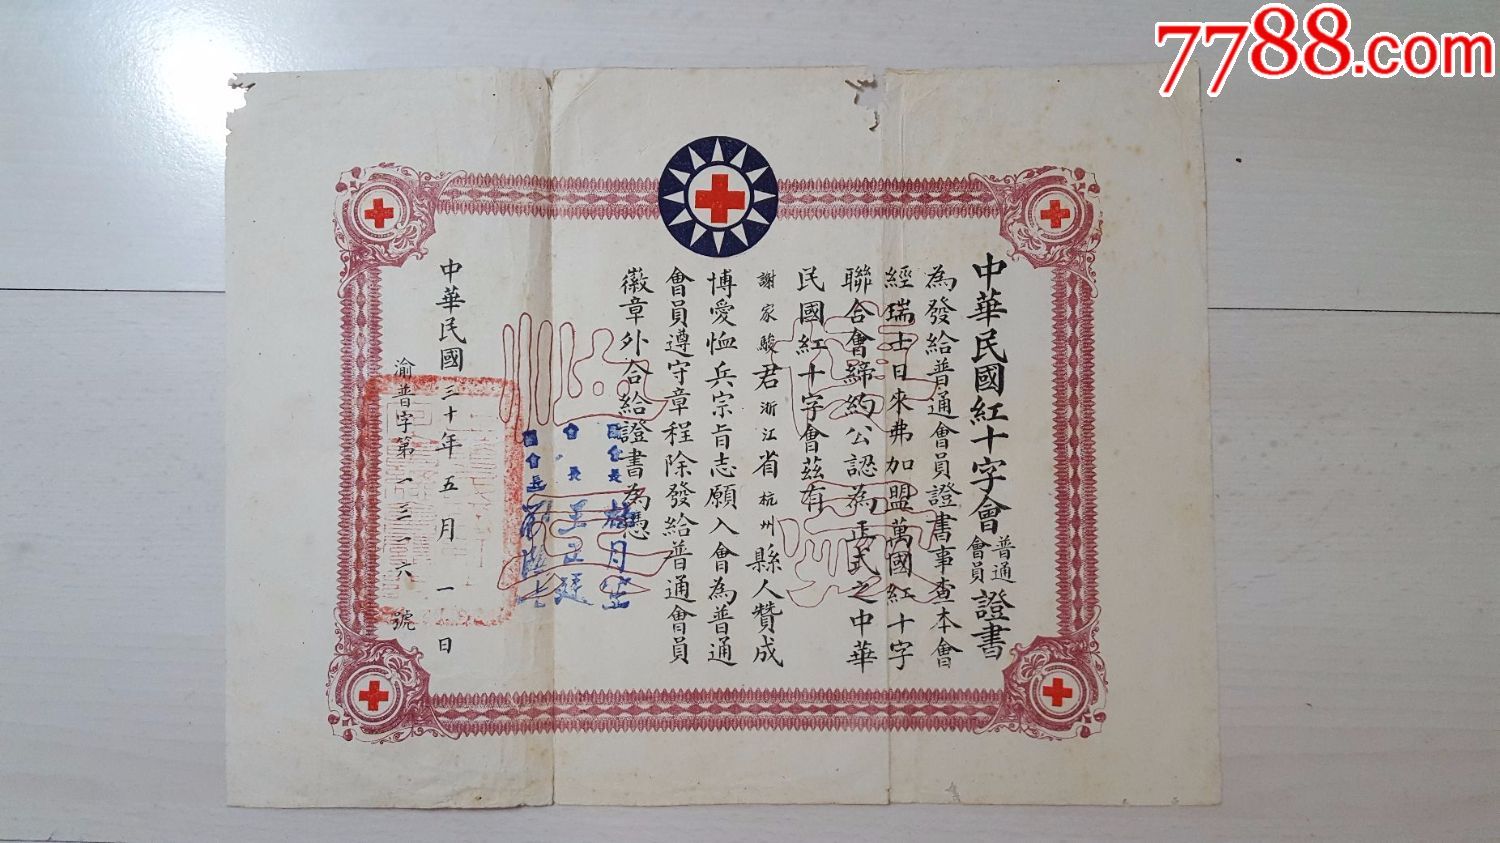 7788.com
中華民國紅十字會普通會員證書
為發給普通會員證書事查本會
經瑞士日來弗加盟萬國紅十字
聯合會締約公認為正式之中華
民國紅十字會茲有
謝家駿君浙江省杭州縣人贊成
博愛恤兵宗旨志願入會為普通
會員遵守章程除發給普通會員
徽章外合給證書為憑
會長王正廷
中華民國三十年五月一日
渝普字第一三一六號